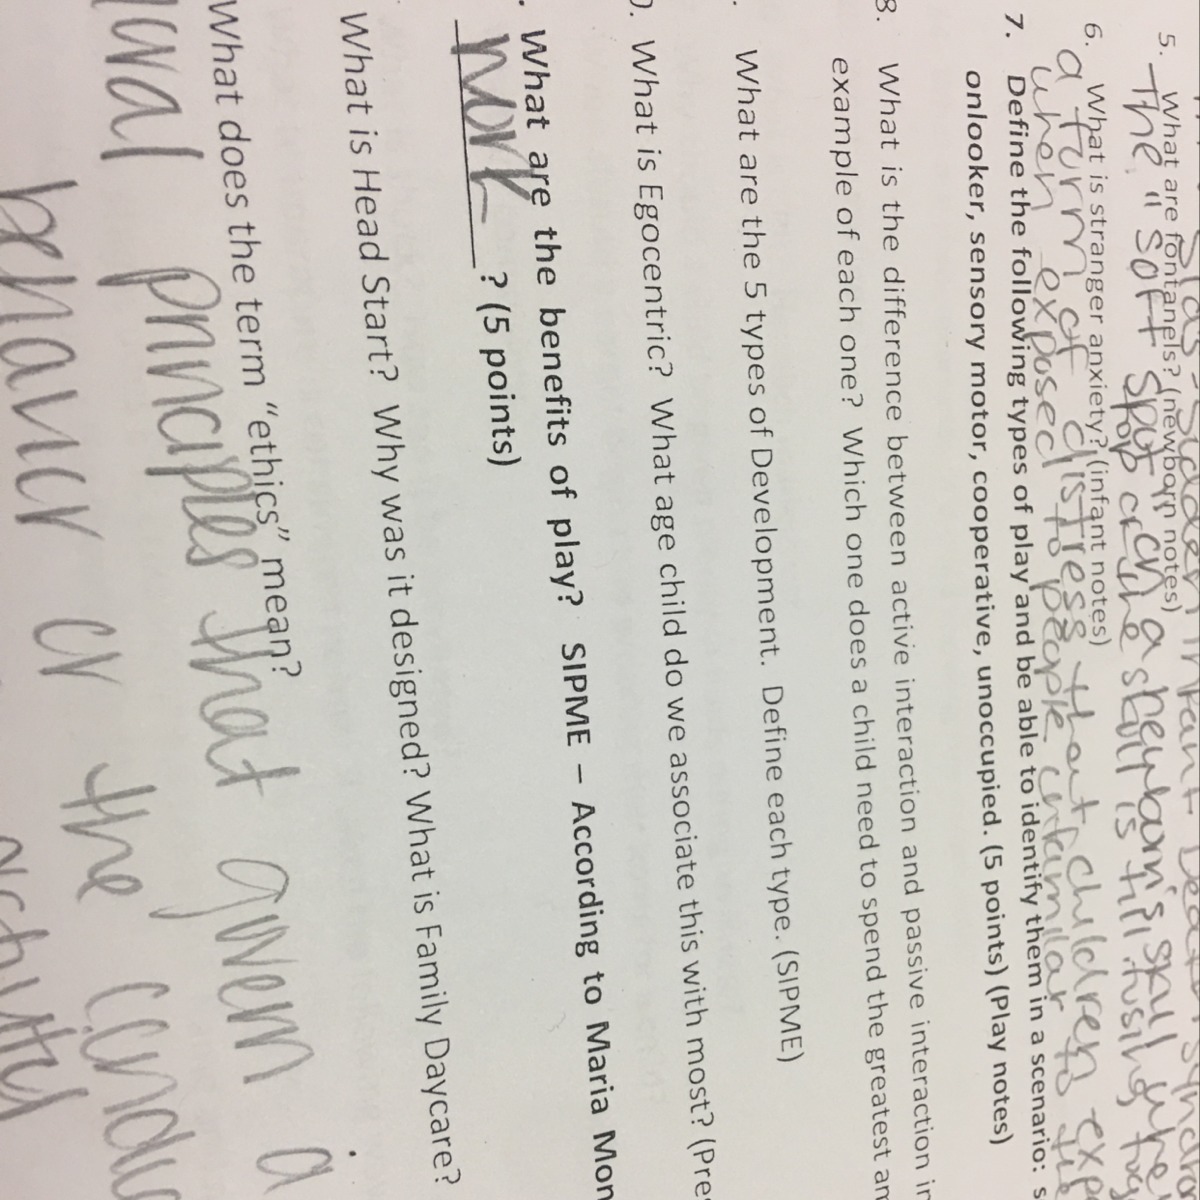 5. What are fontanels? (newborn notes)
The "soft spot" on a newborn's skull where
6. What is stranger anxiety? (infant notes)
a form of distress that children exp
when exposed to people unfamiliar to
7. Define the following types of play and be able to identify them in a scenario: s
onlooker, sensory motor, cooperative, unoccupied. (5 points) (Play notes)
8. What is the difference between active interaction and passive interaction in
example of each one? Which one does a child need to spend the greatest am
. What are the 5 types of Development. Define each type. (SIPME)
0. What is Egocentric? What age child do we associate this with most? (Pres
. What are the benefits of play? SIPME – According to Maria Mon
work ? (5 points)
What is Head Start? Why was it designed? What is Family Daycare?
What does the term "ethics" mean?
principles that govern a
behavior or the